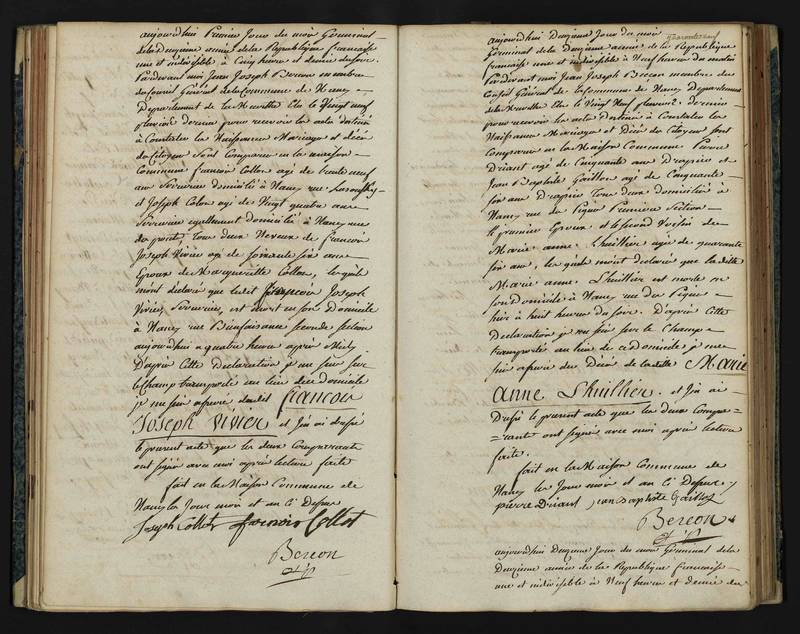 aujourd'hui Premier Jour du mois Germinal
dela Deuxieme année dela Republique francaise
une et indivisible à Cinq heures et demie du soir.
Pardevant moi Jean Joseph Bereon membre
du Conseil Général dela Commune de Nancy
Département de la Meurthe Elu le Vingt neuf
pluviose dernier pour recevoir les actes destinés
à Constater les Naissances Mariages et décès
des Citoyens Sont Comparus en la maison
Commune francois Collot agé de trente neuf
ans Serrurier domicilié à Nancy rue
et Joseph Colot agé de Vingt quatre ans
Serrurier egallement domicilié à Nancy rue
des ponts, Tous deux Neveux de francois
Joseph Vivier agé de soixante six ans
Epoux de Marguerite Collot, lesquels
m'ont déclaré que ledit francois Joseph
Vivier, Serrurier, est mort en son Domicile
à Nancy rue Bienfaisance seconde section
aujourd'hui a quatre heures après Midi
D'après Cette Declaration je me suis sur
le Champ transporté au lieu dece domicile
je me suis assuré dudit francois
Joseph Vivier et J'ai dressé
le present acte que les deux Comparants
ont signé avec moi après lecture faite
fait en la Maison Commune de
Nancy les Jour mois et an Ci Dessus
Joseph Collot francois Collot
Bereon
quarante neuf
aujourd'hui Deuxieme Jour du mois
Germinal dela Deuxieme année de la Republique
francaise une et indivisible à Neuf heures du matin
Pardevant moi Jean Joseph Bereon membre du
Conseil Général de la Commune de Nancy Departement
de la Meurthe Elu le Vingt Neuf pluviose dernier
pour recevoir les actes Destinés à Constater les
Naissances Mariages et Décès des Citoyens sont
Comparus en la Maison Commune Pierre
Driant agé de Cinquante ans Drapier et
Jean Baptiste Gaillot agé de Cinquante
six ans Drapier Tous deux domiciliés à
Nancy rue du Premiere Section
le premier Epoux, et le second Voisin de
Marie anne Lhuillier agée de quarante
six ans, les quels m'ont declaré que ladite
Marie anne Lhuillier est morte en
son domicile à Nancy rue du
hier à huit heures du soir. D'après Cette
Declaration je me suis sur le Champ
transporté au lieu de ce domicile je me
suis assuré du Décès de ladite Marie
Anne Lhuillier. et J'ai
Dressé le present acte que les deux Compa=
=rants ont signés avec moi après lecture
faite.
fait en la Maison Commune de
Nancy les Jour mois et an Ci Dessus
pierre Driant jean Baptiste Gaillot
Bereon
aujourd'hui Deuxieme Jour du mois Germinal dela
Deuxieme année de la Republique francaise
une et indivisible à Neuf heures et demie du